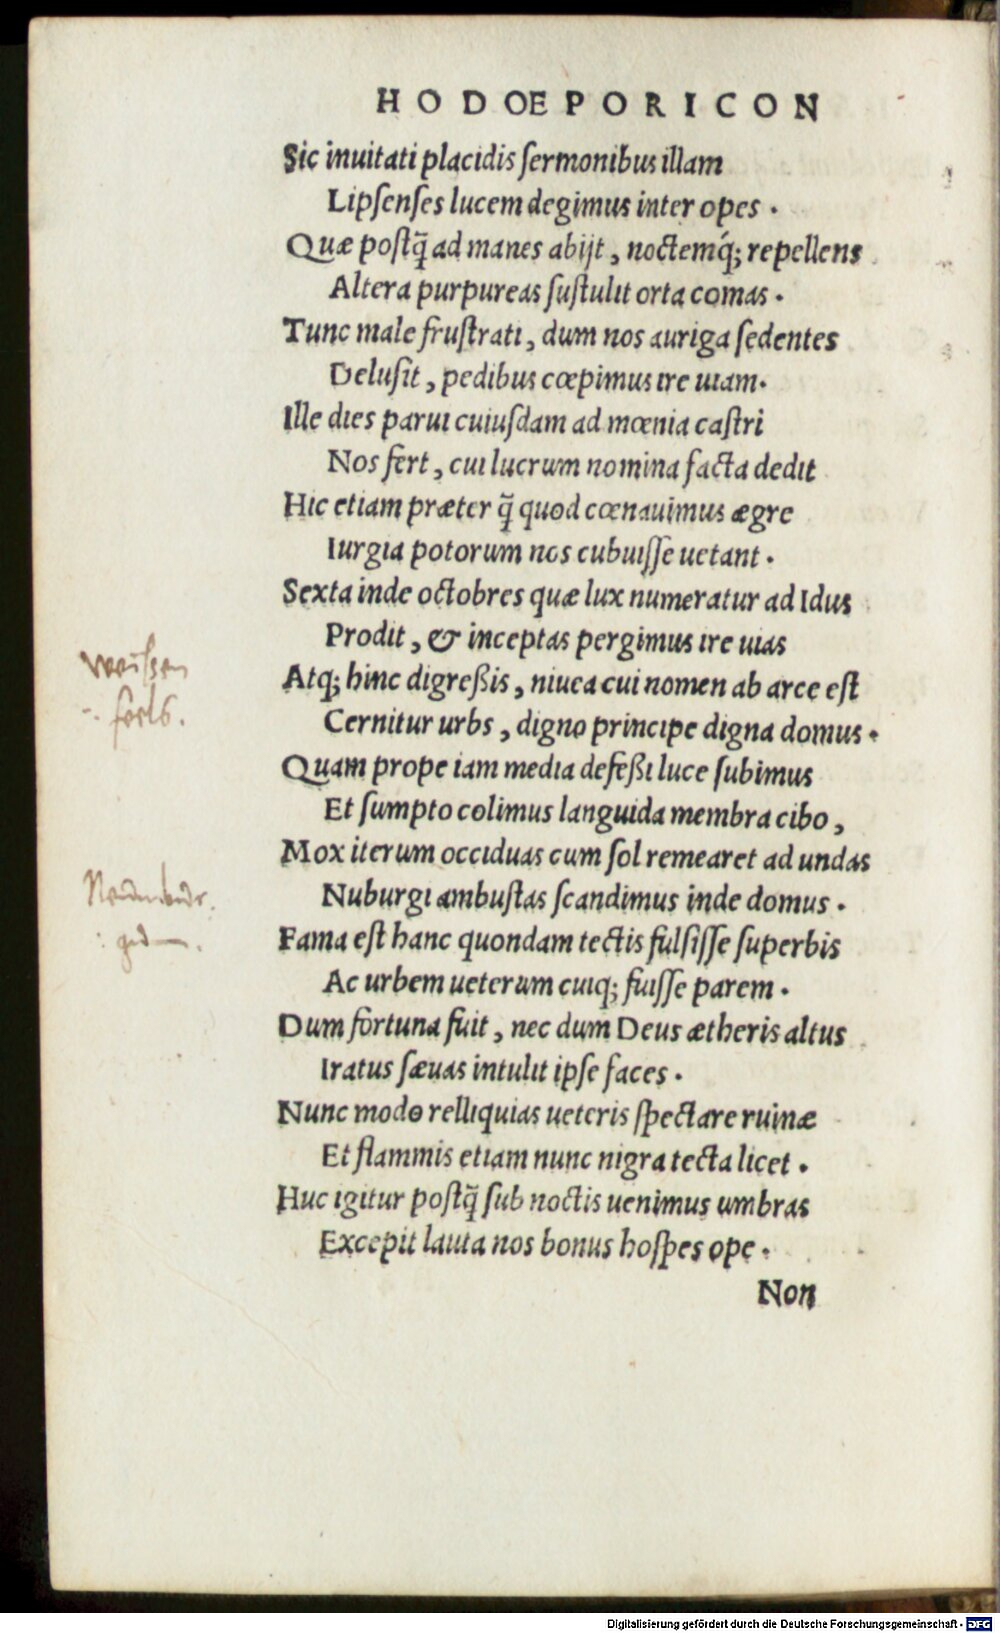 HODOEPORICON
Sic inuitati placidis ſermonibus illam
Lipſenſes lucem degimus inter opes.
Quæ poſtq̃ ad manes abijt, noctemq́; repellens
Altera purpureas ſuſtulit orta comas.
Tunc male fruſtrati, dum nos auriga ſedentes
Deluſit, pedibus cœpimus ire uiam.
Ille dies parui cuiuſdam ad mœnia caſtri
Nos fert, cui lucrum nomina facta dedit
Hic etiam præter q̃ quod cœnauimus ægre
Iurgia potorum nos cubuiſſe uetant.
Sexta inde octobres quæ lux numeratur ad Idus
Prodit, & inceptas pergimus ire uias
Atq; hinc digreßis, niuea cui nomen ab arce eſt
Cernitur urbs, digno principe digna domus.
Quam prope iam media defeßi luce ſubimus
Et ſumpto colimus languida membra cibo,
Mox iterum occiduas cum ſol remearet ad undas
Nuburgi ambuſtas ſcandimus inde domus.
Fama eſt hanc quondam tectis fulſiſſe ſuperbis
Ac urbem ueterum cuiq; fuiſſe parem.
Dum fortuna fuit, nec dum Deus ætheris altus
Iratus ſæuas intulit ipſe faces.
Nunc modo relliquias ueteris ſpectare ruinæ
Et flammis etiam nunc nigra tecta licet.
Huc igitur poſtq̃ ſub noctis uenimus umbras
Excepit lauta nos bonus hoſpes ope.
Non
weiſſen
fels.
Digitalisierung gefördert durch die Deutsche Forschungsgemeinschaft - DFG